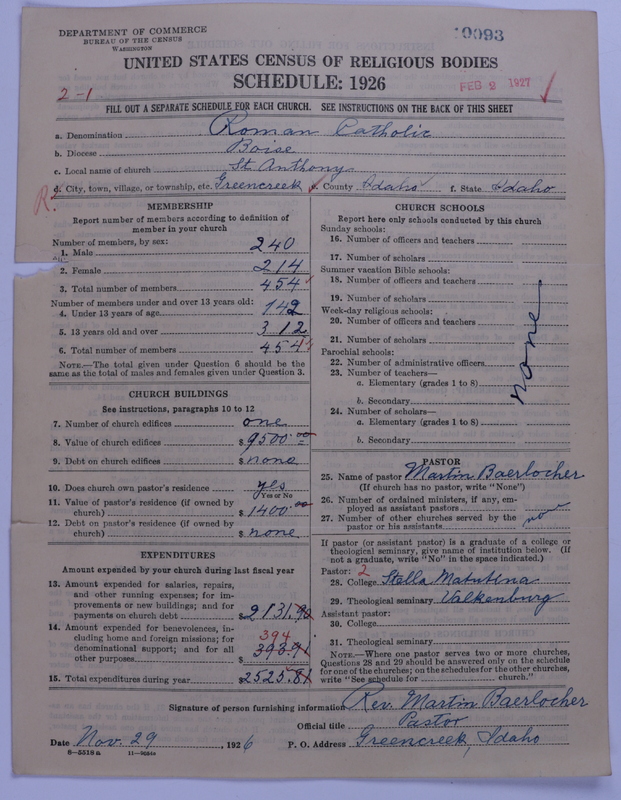 DEPARTMENT OF COMMERCE
BUREAU OF THE CENSUS
WASHINGTON
UNITED STATES CENSUS OF RELIGIOUS BODIES
SCHEDULE: 1926
FEB 2 1927
2-1
FILL OUT A SEPARATE SCHEDULE FOR EACH CHURCH. SEE INSTRUCTIONS ON THE BACK OF THIS SHEET
a. Denomination Roman Catholic
b. Diocese Boise
c. Local name of church St. Anthony
d. City, town, village, or township, etc. Greencreek e. County Idaho f. State Idaho
R.
MEMBERSHIP
Report number of members according to definition of
member in your church
Number of members, by sex:
1. Male 240
2. Female 214
3. Total number of members 454
Number of members under and over 13 years old:
4. Under 13 years of age 142
5. 13 years old and over 312
6. Total number of members 454
NOTE.—The total given under Question 6 should be
same as the total of males and females given under Question 3.
CHURCH BUILDINGS
See instructions, paragraphs 10 to 12
7. Number of church edifices one
8. Value of church edifices $ 9500.00
9. Debt on church edifices $ none
10. Does church own pastor's residence yes
Yes or No
11. Value of pastor's residence (if owned by
church) $ 1400.00
12. Debt on pastor's residence (if owned by
church) $ none
EXPENDITURES
Amount expended by your church during last fiscal year
13. Amount expended for salaries, repairs,
and other running expenses; for im-
provements or new buildings; and for
payments on church debt $ 2131.90
14. Amount expended for benevolences, in-
cluding home and foreign missions; for
denominational support; and for all
other purposes $ 393.91
394
15. Total expenditures during year $ 2525.81
CHURCH SCHOOLS
Report here only schools conducted by this church
Sunday schools:
16. Number of officers and teachers
17. Number of scholars
Summer vacation Bible schools:
18. Number of officers and teachers
19. Number of scholars
Week-day religious schools:
20. Number of officers and teachers
21. Number of scholars
Parochial schools:
22. Number of administrative officers
23. Number of teachers—
a. Elementary (grades 1 to 8)
b. Secondary
24. Number of scholars—
a. Elementary (grades 1 to 8)
b. Secondary
none
PASTOR
25. Name of pastor Martin Baerlocher
(If church has no pastor, write "None")
26. Number of ordained ministers, if any, em-
ployed as assistant pastors
27. Number of other churches served by the
pastor or his assistants
If pastor (or assistant pastor) is a graduate of a college or
theological seminary, give name of institution below. (If
not a graduate, write "No" in the space indicated.)
Pastor: 2
28. College Stella Matutina
29. Theological seminary Valkenburg
Assistant pastor:
30. College
31. Theological seminary
NOTE.—Where one pastor serves two or more churches,
Questions 28 and 29 should be answered only on the schedule
for one of the churches; on the schedules for the other churches,
write "See schedule for church."
Signature of person furnishing information Rev. Martin Baerlocher
Official title Pastor
Date Nov. 29, 1926 P. O. Address Greencreek, Idaho